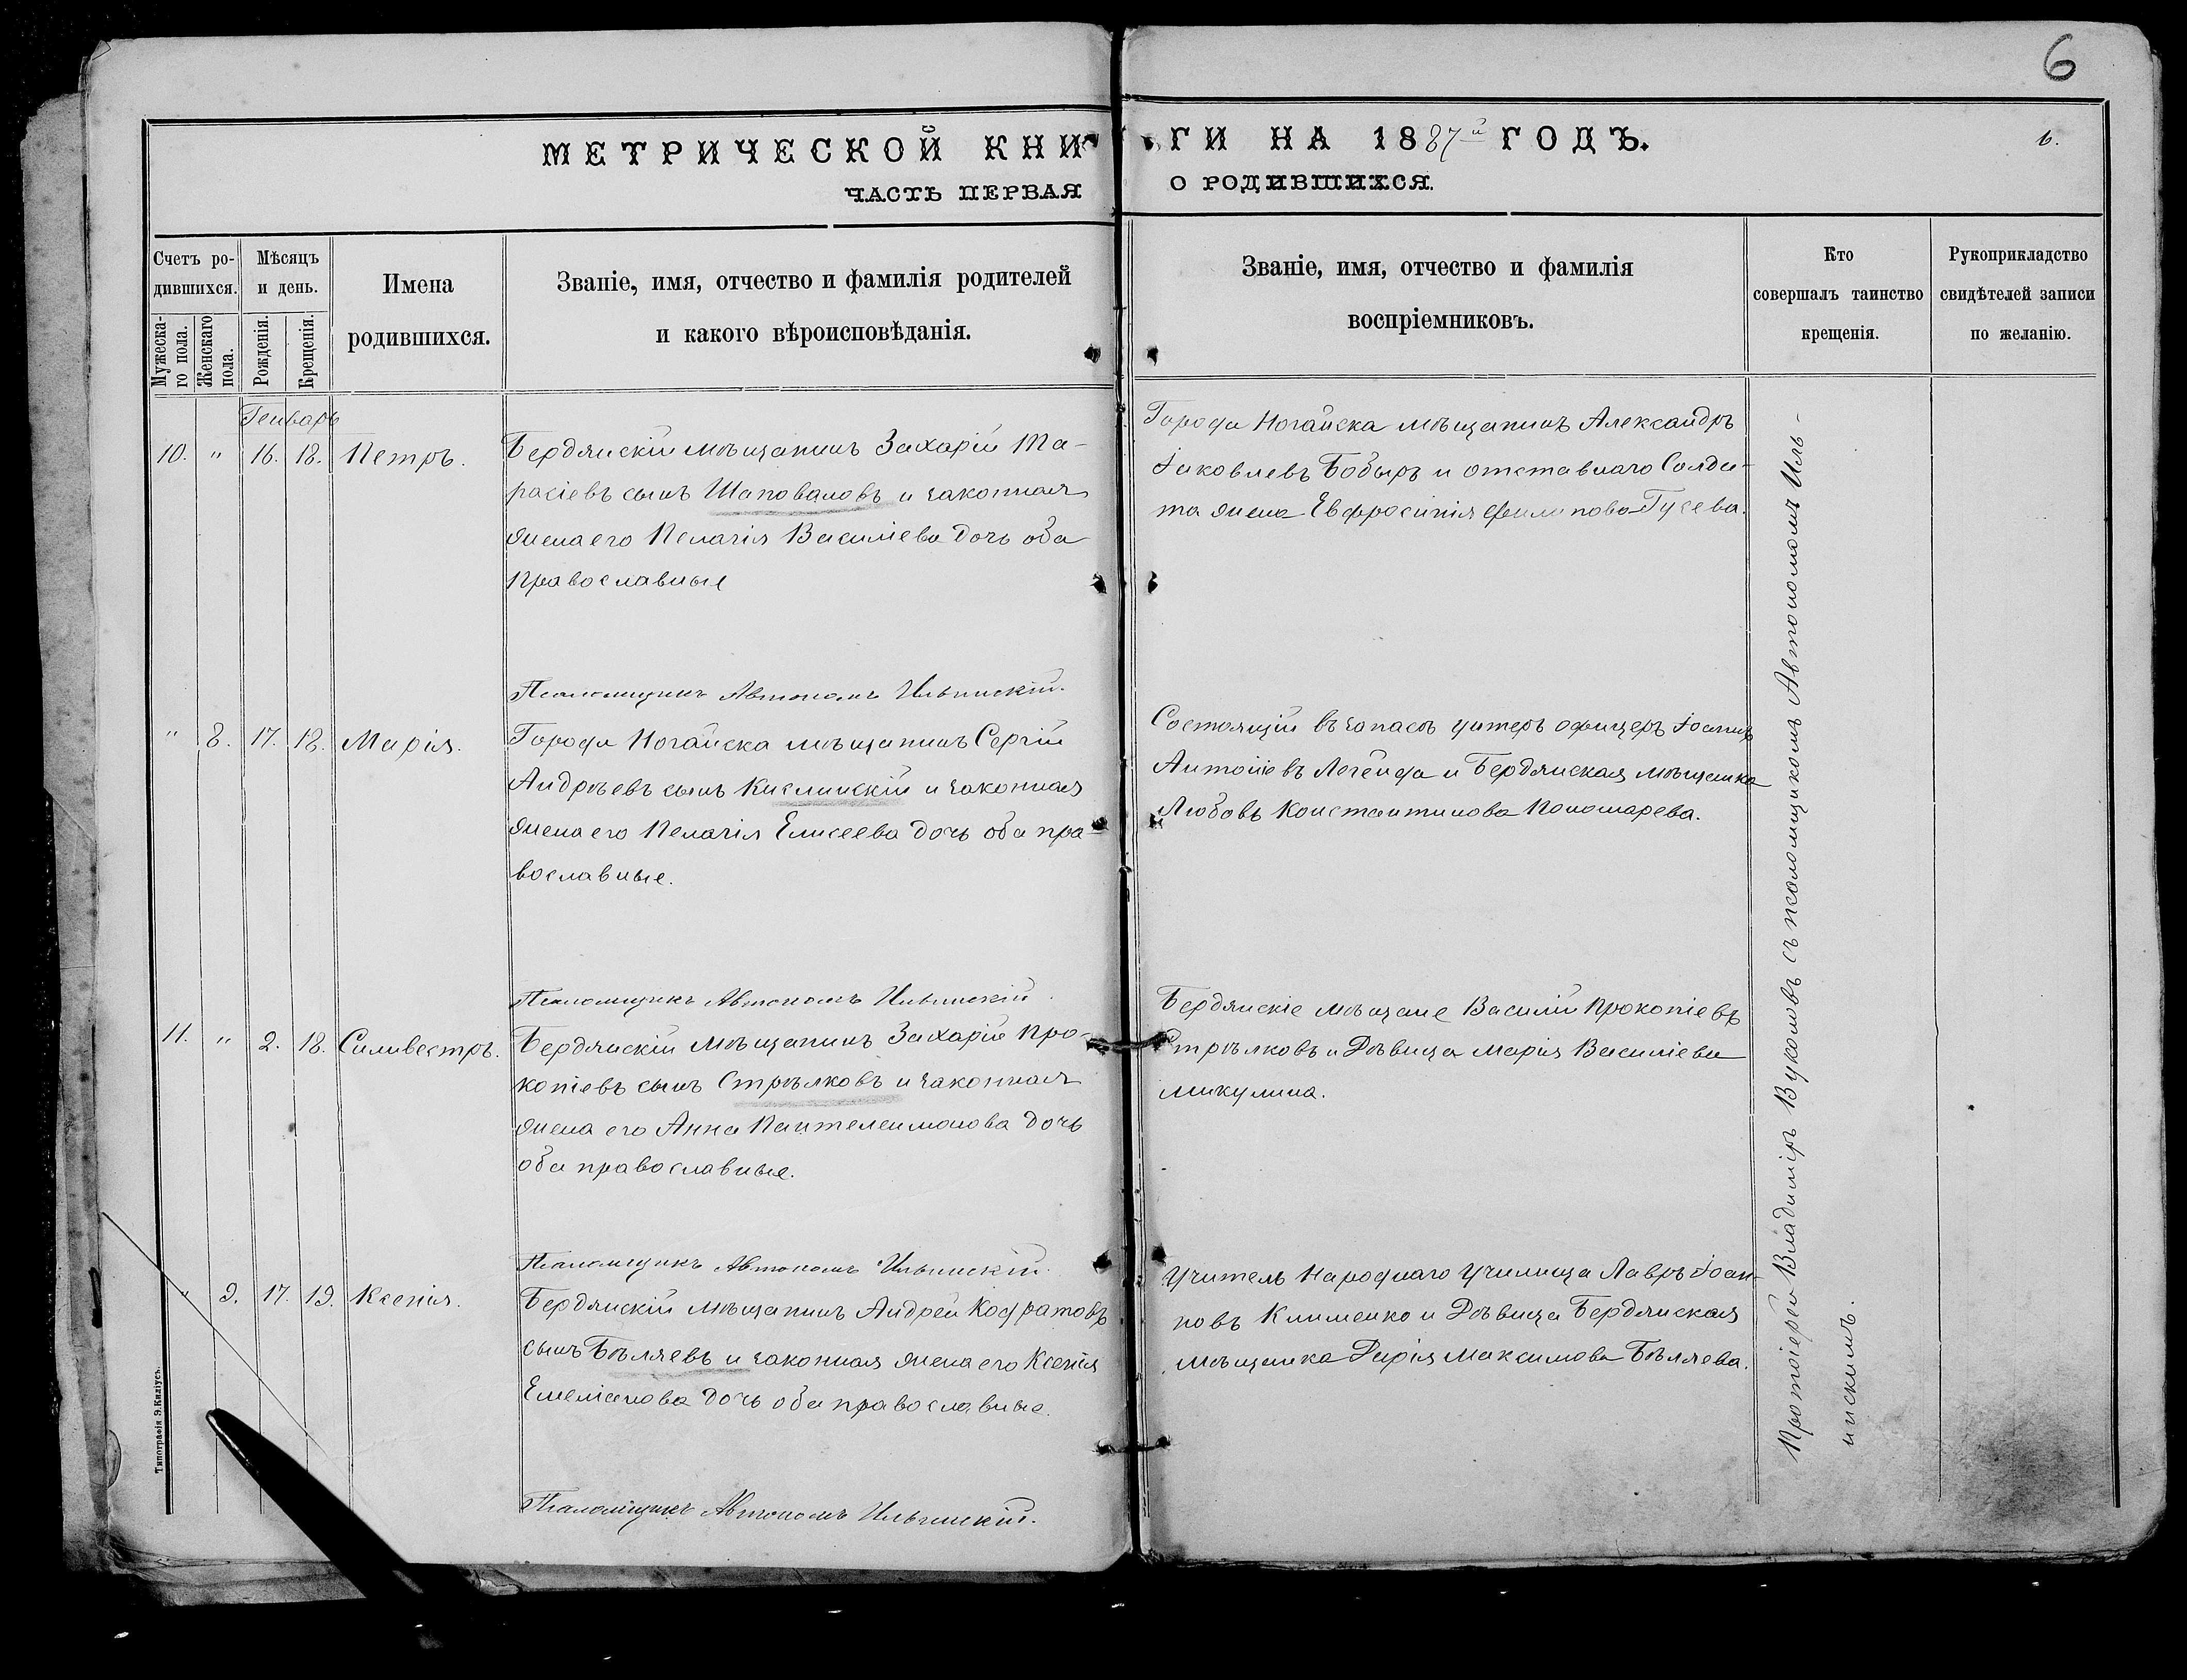 6
МЕТРИЧЕСКОЙ КНИГИ НА 1887й ГОДЪ.
6.
ЧАСТЬ ПЕРВАЯ О РОДИВШИХСЯ.
Счетъ родившихся.
Мужескаго пола.
Женскаго пола.
Мѣсяцъ и день.
Рожденія.
Крещенія.
Имена
родившихся.
Званіе, имя, отчество и фамилія родителей
и какого вѣроисповѣданія.
Званіе, имя, отчество и фамилія
воспріемниковъ.
Кто
совершалъ таинство
крещенія.
Рукоприкладство
свидѣтелей записи
по желанію.
Генварь
10. " 16. 18. Петръ.
Бердянскій мѣщанинъ Захарій Та-
расіевъ сынъ Шаповаловъ и законная
жена его Пелагія Василіева дочь оба
православные
Города Ногайска мѣщанинъ Александръ
Іаковлевъ Бобырь и отставнаго Солда-
та жена Евфросинія Филипова Гусева.
Псаломщикъ Автономъ Ильинскій.
" 8. 17. 18. Марія.
Города Ногайска мѣщанинъ Сергій
Андреевъ сынъ Кислинскій и законная
жена его Пелагія Елисеева дочь оба пра-
вославные.
Состоящій въ запасѣ унтеръ офицеръ Іоаннъ
Антоніевъ Легейда и Бердянская мѣщанка
Любовь Константинова Пономарева.
Псаломщикъ Автономъ Ильинскій.
11. " 2. 18. Силивестръ.
Бердянскій мѣщанинъ Захарій Про-
копіевъ сынъ Стрѣлковъ и законная
жена его Анна Пантелеимонова дочь
оба православные.
Бердянскіе мѣщане Василій Прокопіевъ
Стрѣлковъ и Дѣвица Марія Василіева
Микулина.
Псаломщикъ Автономъ Ильинскій.
" 9. 17. 19. Ксенія.
Бердянскій мѣщанинъ Андрей Кодратовъ
сынъ Бѣляевъ и законная жена его Ксенія
Емеліанова дочь оба православные.
Учитель Народнаго Училища Лавръ Іоан-
новъ Клименко и Дѣвица Бердянская
мѣщанка Дарія Максимова Бѣляева.
Псаломщикъ Автономъ Ильинскій.
Протоіерей Владиміръ Вуколовъ съ псаломщикомъ Автономомъ Иль-
инскимъ.
Типографія Э. Киліусъ.